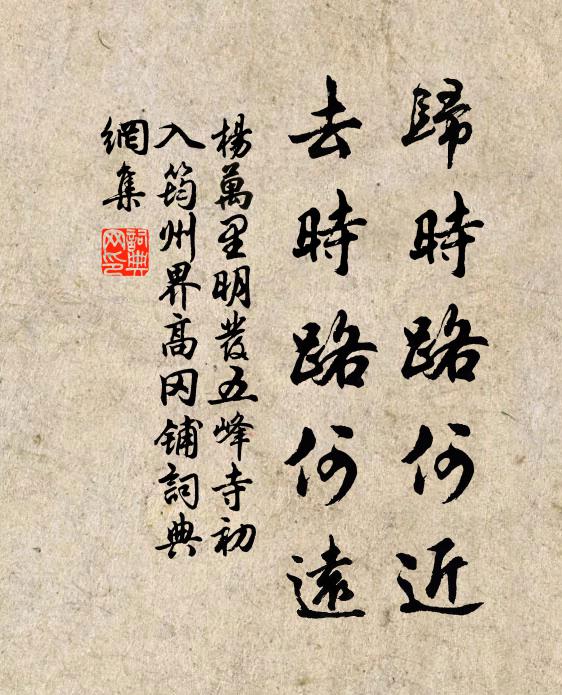 歸時路何近
去時路何遠
楊萬里明發五峰寺初
入筠州界高岡鋪詞典
網集
詞典
网印